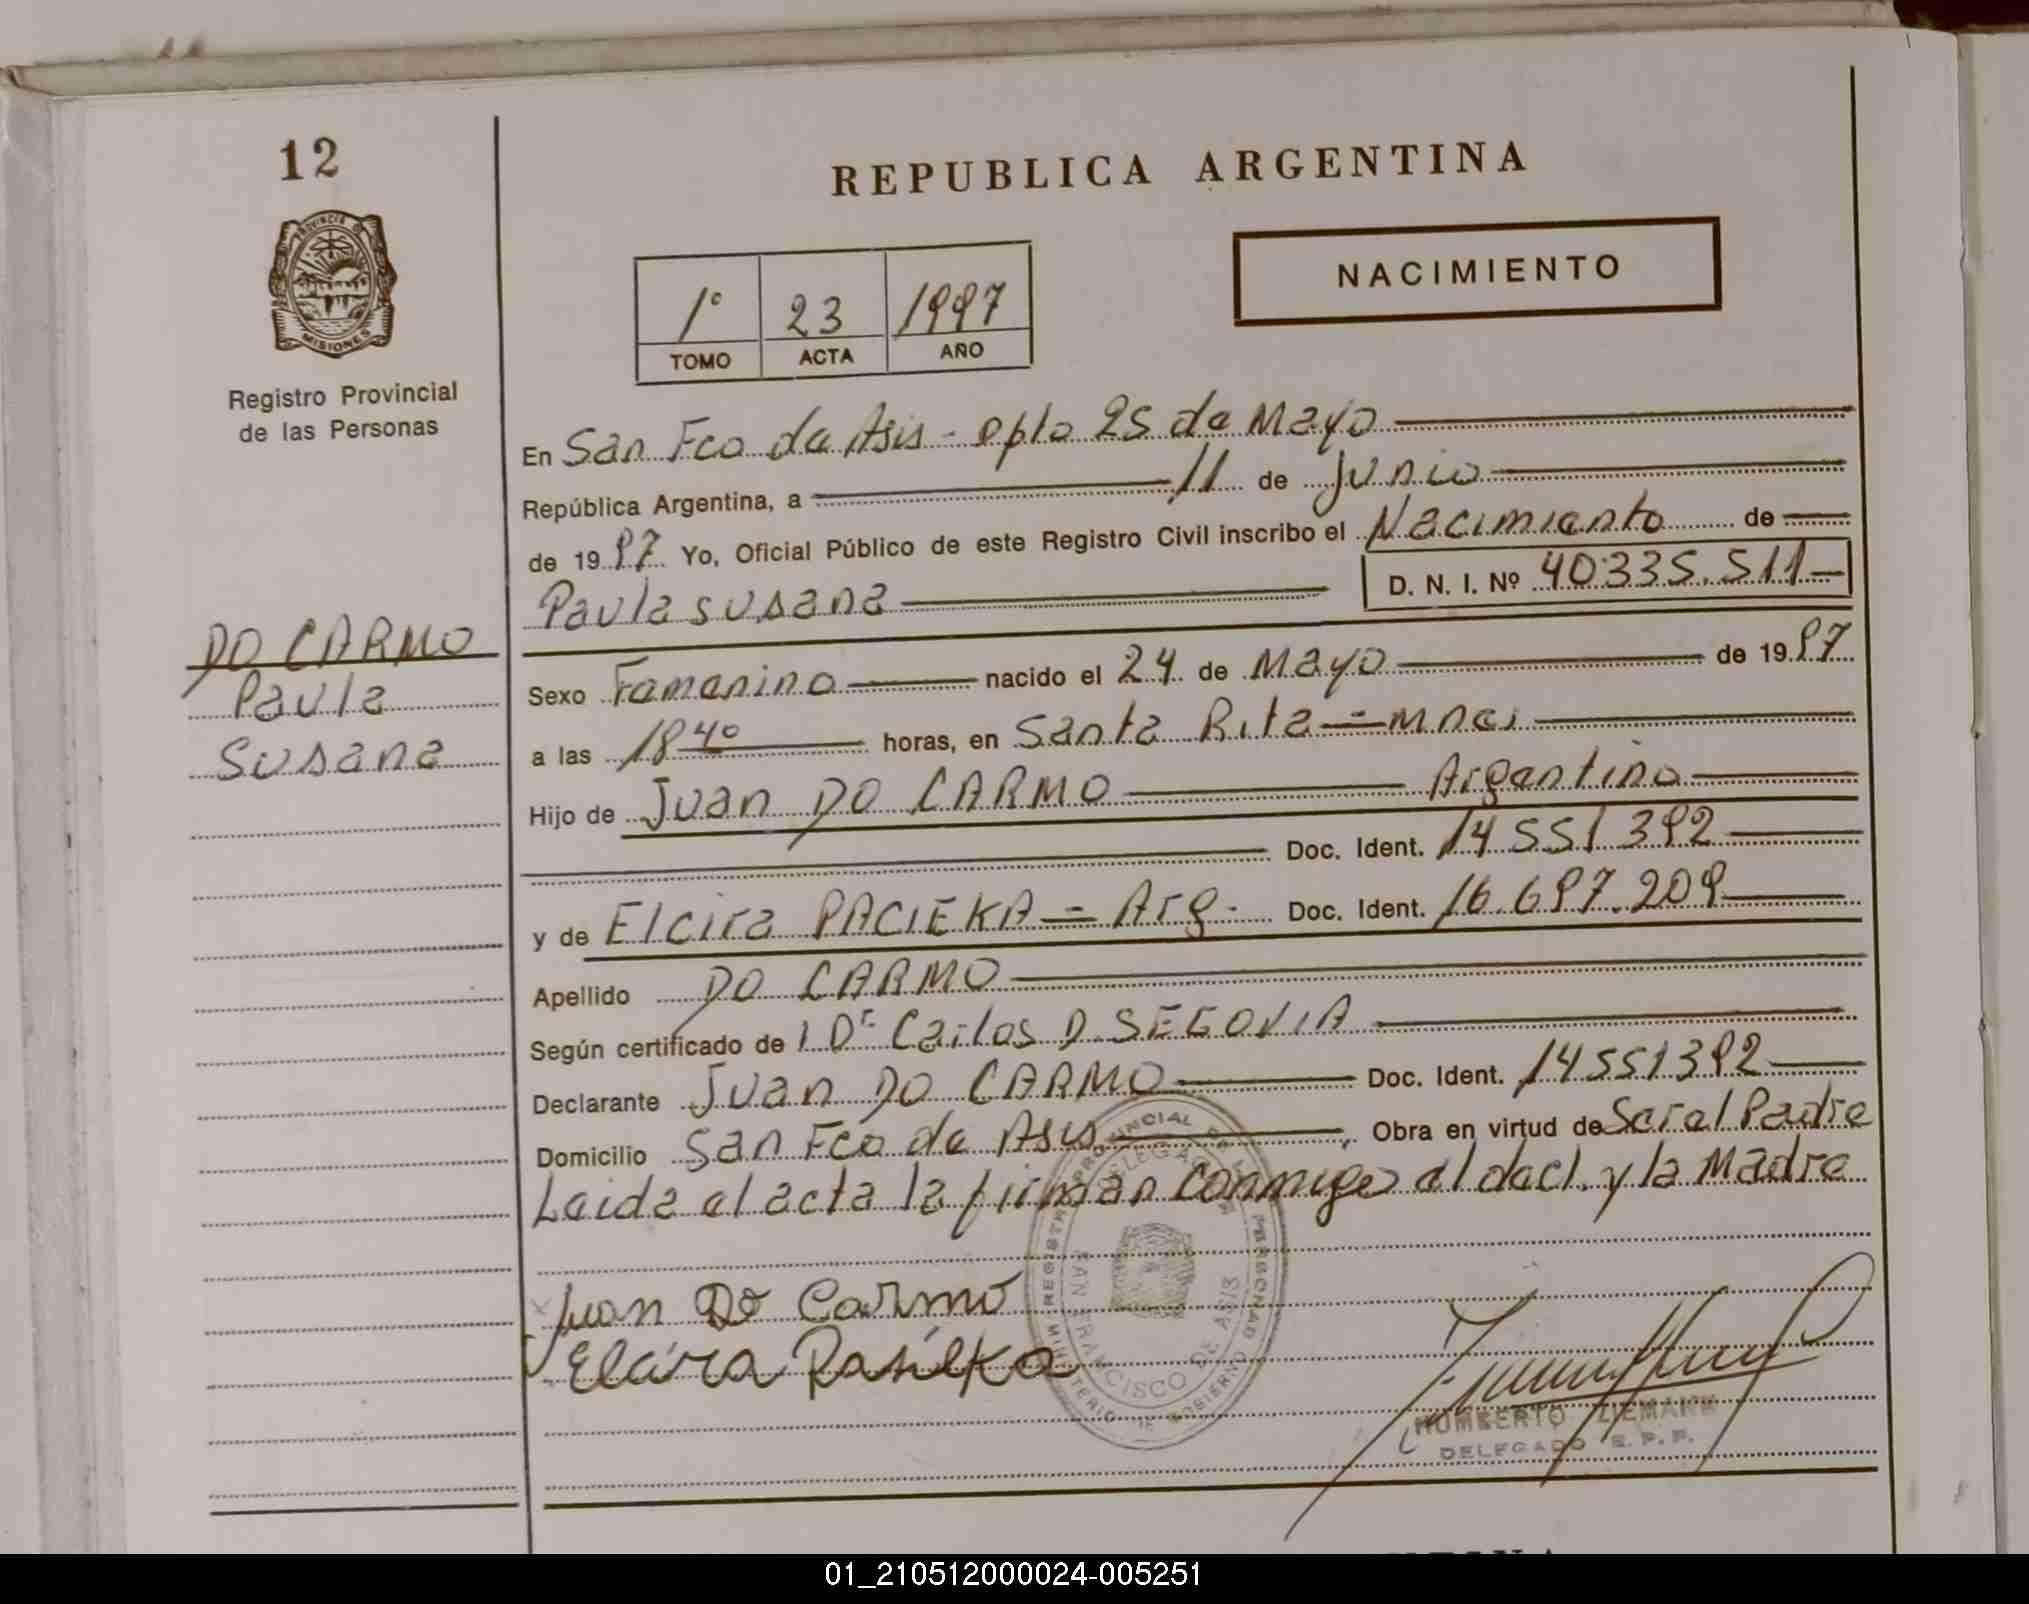 12
REPUBLICA ARGENTINA
PROVINCIA DE
MISIONES
Registro Provincial
de las Personas
NACIMIENTO
1º 23 1997
TOMO ACTA AÑO
En San Fco de Asis - Dpto 25 de Mayo
República Argentina, a 11 de Junio
de 1997 Yo, Oficial Público de este Registro Civil inscribo el Nacimiento de
Paula Susana D. N. I. Nº 40335.511
DO CARMO
Paula
Susana
Sexo Femenino nacido el 24 de Mayo de 1997
a las 18 40 horas, en Santa Rita = Mnes
Hijo de Juan DO CARMO Argentino
Doc. Ident. 14 551 392
y de Elcira PACIEKA = Arg. Doc. Ident. 16.697.209
Apellido DO CARMO
Según certificado de 1 Dr Carlos D. SEGOVIA
Declarante Juan DO CARMO Doc. Ident. 14551392
Domicilio San Fco de Asis Obra en virtud de Ser el Padre
Leida el acta la firman conmigo el decl. y la Madre
REGISTRO PROVINCIAL DE LAS PERSONAS
DELEGACION
SAN FRANCISCO DE ASIS
MINISTERIO DE GOBIERNO
Juan Do Carmo
Elcira
HUMBERTO ZIEMANN
DELEGADO R. P. P.
01_210512000024-005251